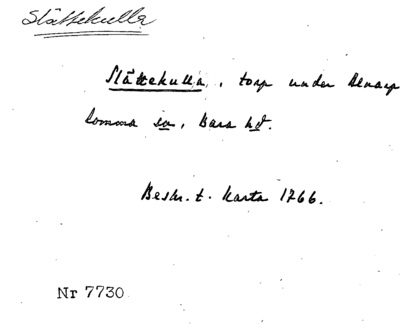 Slättekulla
Slättekulla, torp under Alnarp
Lomma sn, Bara hd.
Beskr. t. karta 1766.
Nr 7730